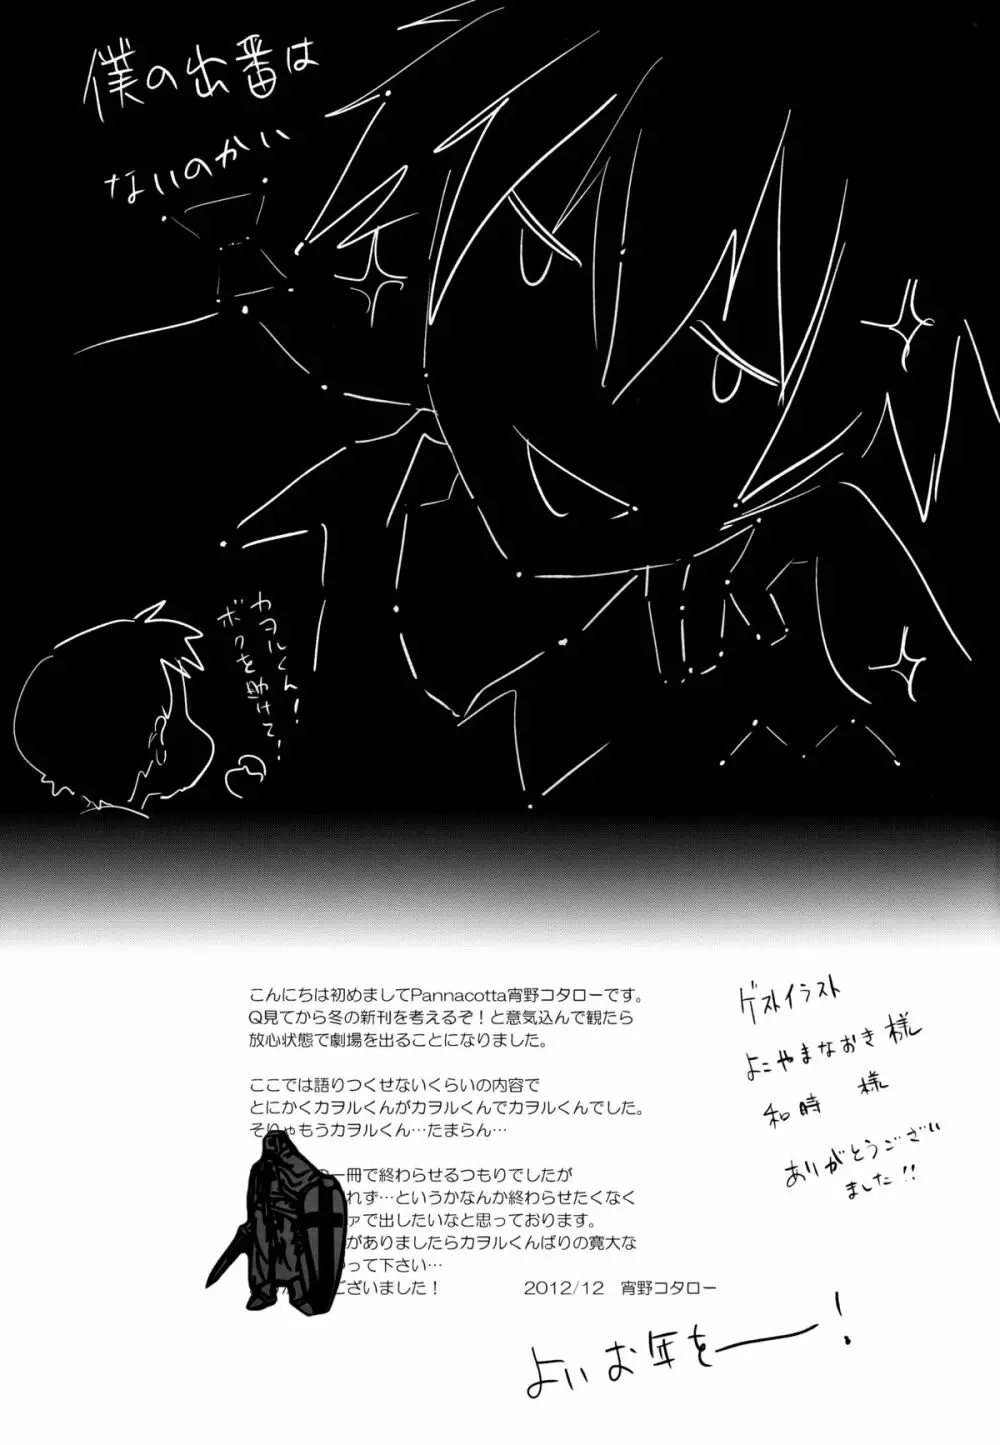 僕の出番は
ないのかい
カヲルくん!
ボクを助けて!
こんにちは初めましてPannacotta宵野コタローです。
Q見てから冬の新刊を考えるぞ！と意気込んで観たら
放心状態で劇場を出ることになりました。
ここでは語りつくせないくらいの内容で
とにかくカヲルくんがカヲルくんでカヲルくんでした。
そりゃもうカヲルくん…たまらん…
一冊で終わらせるつもりでしたが
れず…というかなんか終わらせたくなく
ァで出したいなと思っております。
がありましたらカヲルくんばりの寛大な
って下さい…
ございました！
2012/12 宵野コタロー
ゲストイラスト
よこやまなおき様
和時 様
ありがとうござい
ました!!
よいお年をーー!